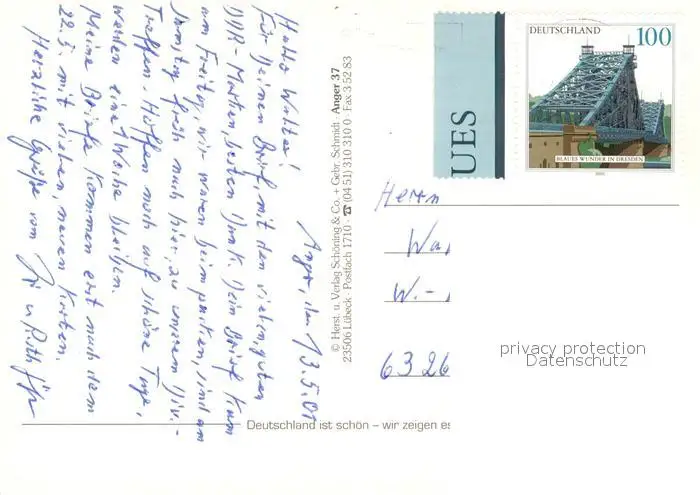 Anger, den 13.5.01
Hallo Walter!
Für Deinen Brief, mit den vielen, guten
DDR-Marken, besten Dank. Dein Brief kam
am Freitag, wir waren beim packen, sind am
Samstag früh nach hier, zu unserem
Treffen. Hoffen noch auf schöne Tage,
werden eine Woche bleiben.
Meine Briefe kommen erst nach dem
22.5. mit vielen, neuen Karten.
Herzliche Grüße vom
u. Ruth
© Herst. u. Verlag Schöning & Co. + Gebr. Schmidt · Anger 37
23506 Lübeck · Postfach 1710 · ☎ (04 51) 310 310 0 · Fax 3 52 83
Deutschland ist schön – wir zeigen es
UES
DEUTSCHLAND 100
BLAUES WUNDER IN DRESDEN
Herrn
Wa
W.-
6326
privacy protection
Datenschutz